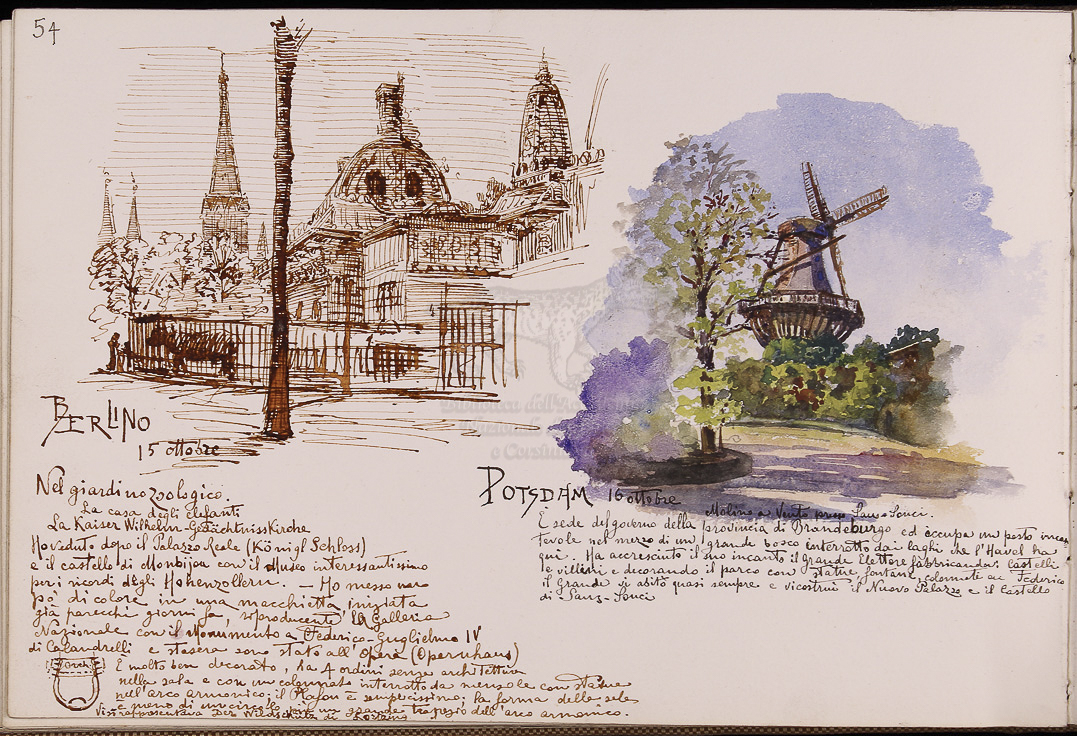 54
BERLINO
15 ottobre
Nel giardino zoologico.
La casa degli elefanti
La Kaiser Wilhelm-Gedächtniss Kirche
Ho veduto dopo il Palazzo Reale (Königl Schloss)
e il castello di Monbijou con il Museo interessantissimo
per i ricordi degli Hohenzollern. — Ho messo un
po' di colore in una macchietta iniziata
già parecchi giorni fa, riproducente la Galleria
Nazionale con il Monumento a Federico-Guglielmo IV
di Calandrelli e stasera sono stato all'Opera (Opernhaus)
È molto ben decorato, ha 4 ordini senza architettura
nella sala e con un colonnato interrotto da mensole con statue
nell'arco armonico; il Plafon è semplicissimo; la forma della sala
è meno di un circolo più un grande trapezio dell'arco armonico.
Vi si rappresentava Der Wildschütz di Lortzing
Orch
POTSDAM 16 ottobre
Molino a Vento presso Sans-Souci.
È sede del governo della provincia di Brandeburgo ed occupa un posto incan-
tevole nel mezzo di un grande bosco interrotto dai laghi che l'Havel ha
qui. Ha accresciuto il suo incanto il Grande Elettore fabbricandovi castelli
e villini e decorando il parco con statue, fontane, colonnate ecc Federico
il Grande vi abitò quasi sempre e vi costruì il Nuovo Palazzo e il Castello
di Sans-Souci
Biblioteca dell'
Nazionale
e Corsiniana